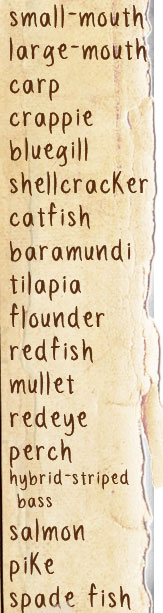 small-mouth
large-mouth
carp
crappie
bluegill
shellcracKer
catfish
baramundi
tilapia
flounder
redfish
mullet
redeye
perch
hybrid-striped
bass
salmon
piKe
spade fish